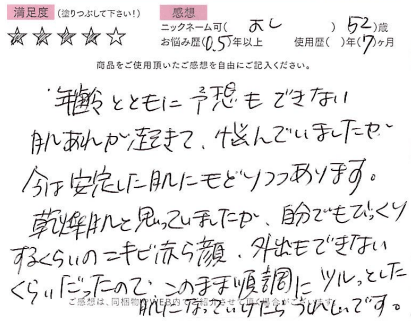 満足度 (塗りつぶして下さい!) 感想
★★★★☆ ニックネーム可( おし ) 52 歳
お悩み歴(0.5)年以上 使用歴( )年(7)ヶ月
商品をご使用頂いたご感想を自由にご記入ください。
年齢とともに予想もできない
肌あれが起きて、悩んでいましたが
今は安定した肌にもどりつつあります。
乾燥肌と思っていましたが、自分でもびっくり
するくらいのニキビ赤ら顔、外出もできない
くらいだったので、このまま順調にツルっとした
肌になっていけたらうれしいです。